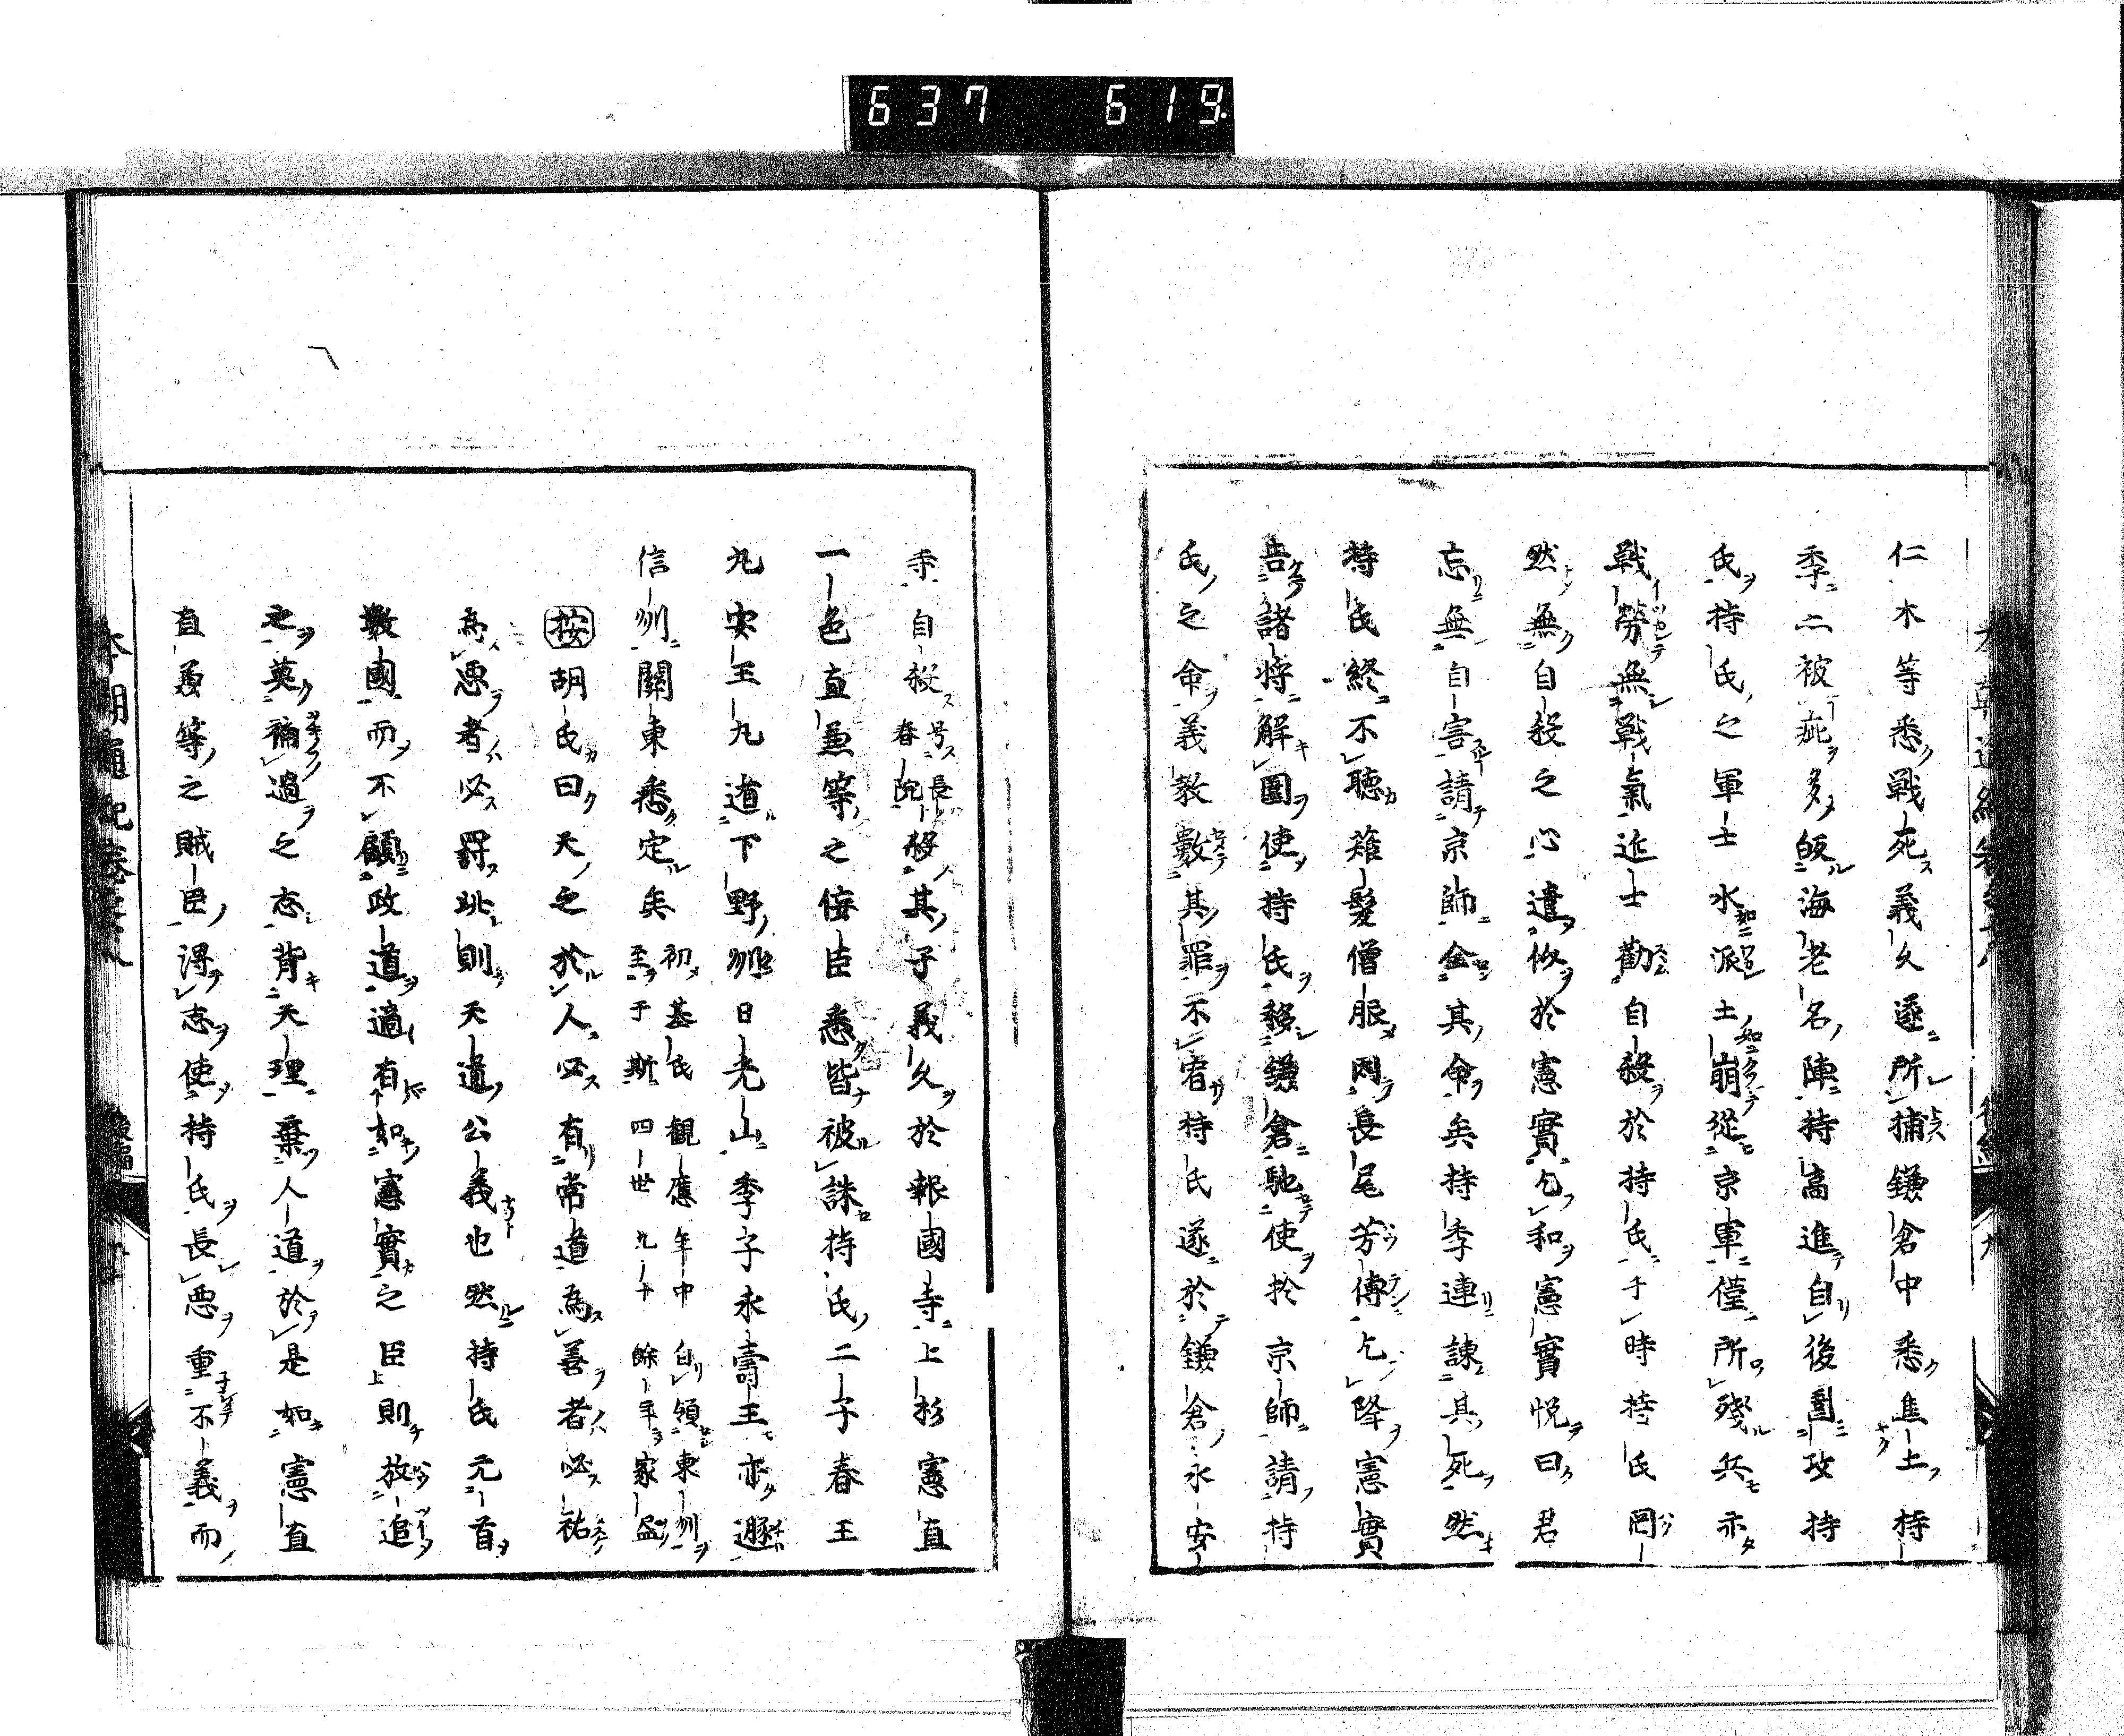 637 619
仁木等悉戰死義久遂所捕鎌倉中悉焦土持
季二被疵多皈海老名陣持高進自後圍攻持
氏持氏之軍士水派土崩從京軍僅所殘兵亦
戰勞無戰氣近士勸自殺於持氏于時持氏罔
然無自殺之心遣悠於憲實乞和憲實悦曰君
忘無自害請京師全其命矣持季連諫其死然
持氏終不聽薙髮僧服因長尾芳傳乞降憲實
告諸將解圍使持氏移鎌倉馳使於京師請持
氏之命義教數其罪不宥持氏遂於鎌倉永安
寺自殺号長春院移其子義久於報國寺上杉憲直
一色直兼等之侫臣悉皆被誅持氏二子春王
丸安王丸遁下野州日光山季子永壽王亦遯
信州關東悉定矣初基氏觀應年中自領東州至于斯四世九十餘年家盈
按胡氏曰天之於人必有常道為善者必祐
為惡者必罰此則天道公義也然持氏元首
數國而不顧政道適有如憲實之臣則放追
之莫補過之志背天理棄人道於是如憲直
直兼等之賊臣得志使持氏長惡重不義而